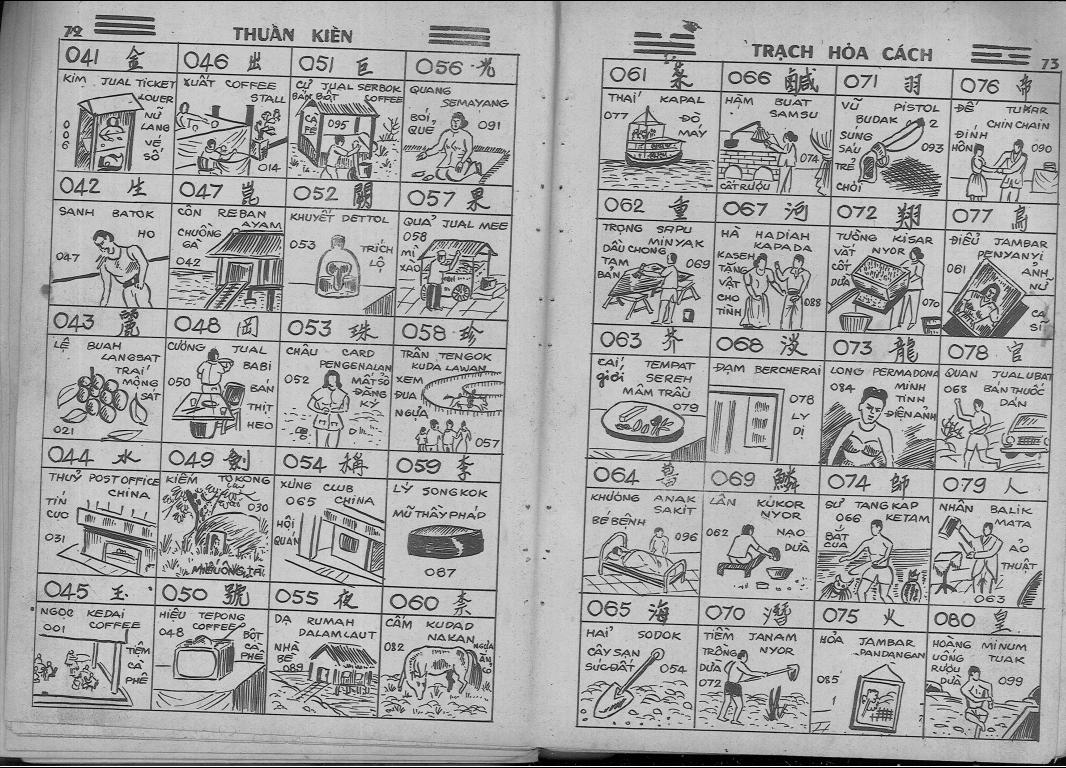 72
THUẦN KIỀN
041 金
KIM JUAL TICKET
LOUER
NỮ
LANG
VÉ
SỐ
006
046 出
XUẤT COFFEE
STALL
014
051 巨
CỰ JUAL SERBOK
BÁN BỘT COFFEE
CÀ
FÊ
095
056 光
QUANG
SEMAYANG
BÓI
QUẺ
091
042 生
SANH BATOK
HO
047
047 崑
CÔN REBAN
AYAM
CHUỒNG
GÀ
042
052 闕
KHUYẾT DETTOL
053
TRÍCH
LỘ
057 果
QUẢ JUAL MEE
058
MÌ
XÀO
043 麗
LỆ BUAH
LANGSAT
TRAI
MÒNG
SÁT
021
048 岡
CƯƠNG JUAL
BABI
050
BÁN
THỊT
HEO
053 珠
CHÂU CARD
PENGENALAN
052
MẤT SỔ
ĐĂNG
KÝ
058 珍
TRÂN TENGOK
KUDA LAWAN
XEM
ĐUA
NGỰA
057
044 水
THUỶ POST OFFICE
CHINA
TÍN
CỤC
031
049 劍
KIẾM TOKONG
030
054 稱
XƯNG CLUB
065 CHINA
HỘI
QUÁN
059 李
LÝ SONGKOK
MŨ THẦY PHÁP
087
045 玉
NGỌC KEDAI
001 COFFEE
TIỆM
CÀ
PHÊ
050 號
HIỆU TEPONG
COFFEE
048
BỘT
CÀ
PHÊ
055 夜
DẠ RUMAH
DALAM LAUT
NHÀ
BÈ
089
060 柰
CẤM KUDAD
NAKAN
082
NGỰA
ĂN
TRẠCH HỎA CÁCH
73
061 菜
THÁI KAPAL
077
ĐÒ
MÁY
066 鹹
HẬM BUAT
SAMSU
074
CẤT RƯỢU
071 羽
VŨ PISTOL
BUDAK 2
SÚNG
SÁU
TRẺ
CHƠI
093
076 帝
ĐẾ TUKAR
CHIN CHAIN
ĐÍNH
HÔN
090
062 重
TRỌNG SAPU
MINYAK
DẦU CHONG
TAM
BẢN
069
067 河
HÀ HADIAH
KAPADA
KASEH
TẶNG
VẬT
CHO
TÌNH
088
072 翔
TƯỜNG KISAR
VẮT NYOR
CỐT
DỪA
070
077 鳥
ĐIỂU JAMBAR
PENYANYI
061
ẢNH
NỮ
CA
SĨ
063 芥
CẢI TEMPAT
giới SEREH
MÂM TRẦU
079
068 淡
ĐẠM BERCHERAI
078
LY
DỊ
073 龍
LONG PERMADONA
084 MINH
TINH
ĐIỆN ẢNH
078 官
QUAN JUAL UBAT
068 BÁN THUỐC
DÁN
064 薑
KHƯƠNG ANAK
SAKIT
BÉ BỆNH
096
069 鱗
LÂN KUKOR
NYOR
062
NẠO
DỪA
074 師
SƯ TANGKAP
066 KETAM
BẮT
CUA
079 人
NHÂN BALIK
MATA
ẢO
THUẬT
063
065 海
HẢI SODOK
CÂY SẠN
SÚC ĐẤT
054
070 潛
TIỀM JANAM
TRỒNG NYOR
DỪA
072
075 火
HỎA JAMBAR
PANDANGAN
085
080 皇
HOÀNG MINUM
UỐNG TUAK
RƯỢU
DỪA
099